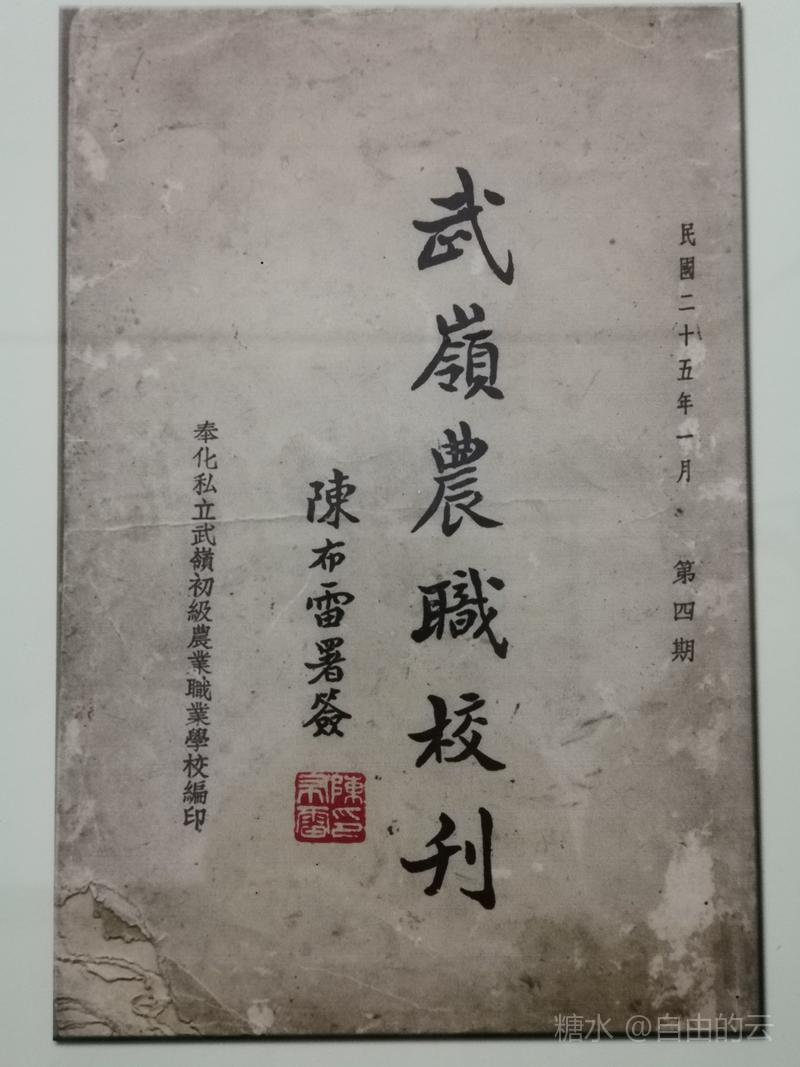 民國二十五年一月、 第四期
武嶺農職校刊
陳布雷署簽
陳布雷印
奉化私立武嶺初級農業職業學校編印
糖水 @自由的云